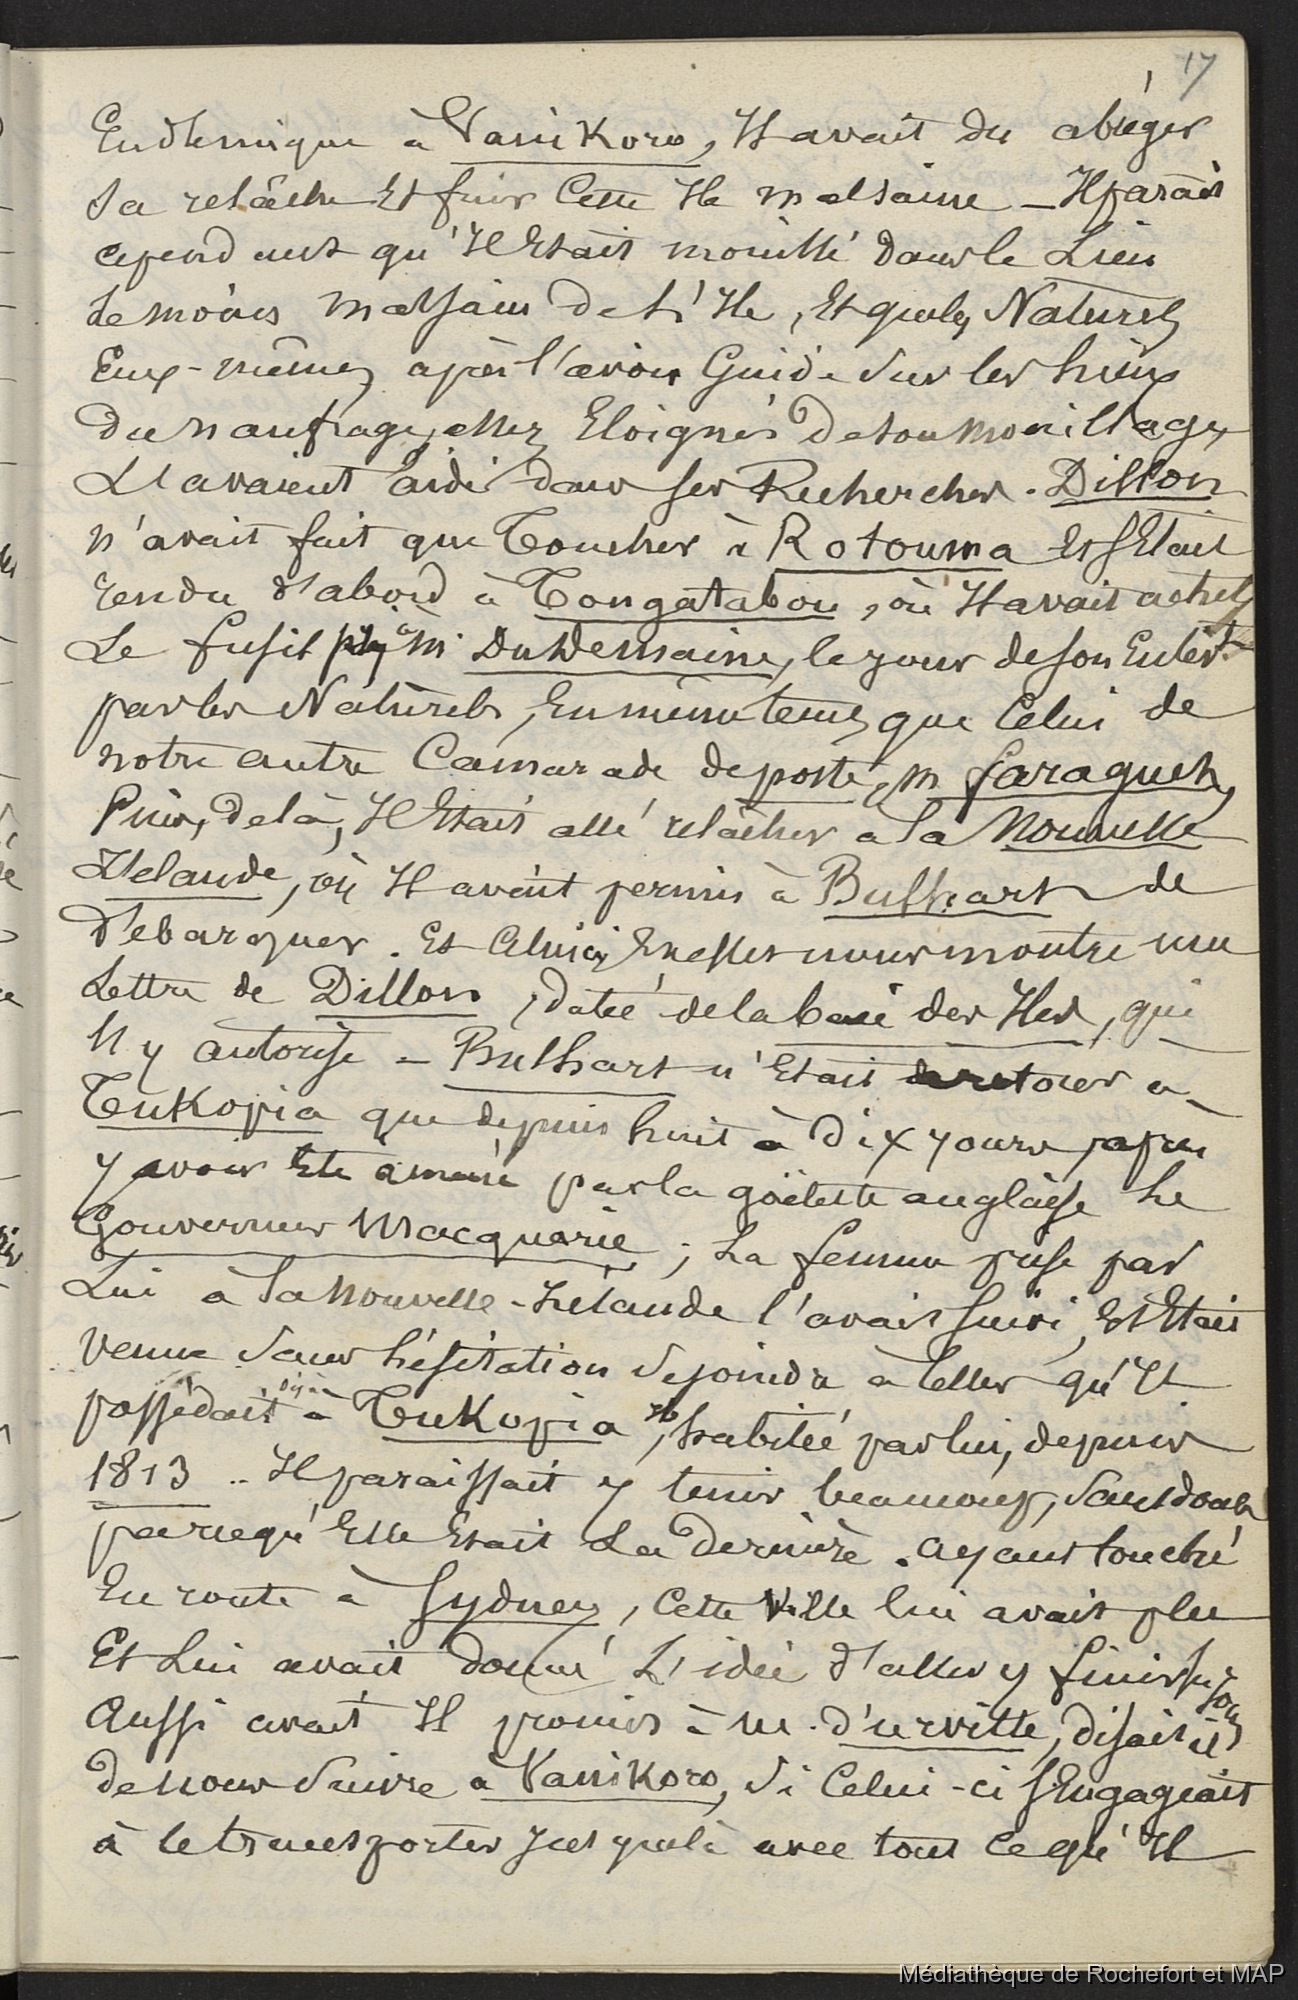 17
Endémique à Vanikoro, Il avait du abréger
sa relâche Et fuir Cette Ile malsaine _ Il parait
cependant qu'Il Etait mouillé dans le Lieu
le moins malsain de L'Ile, Et que les Naturels
Eux-mêmes après l'avoir Guidé sur les Lieux
du naufrage, assez Eloignés de son mouillage,
L'avaient aidé dans ses Recherches. Dillon
n'avait fait que Toucher à Rotouma Et s'Etait
rendu d'abord à Tongatabou, où Il avait acheté
Le fusil pris à M. Dudemaine, le jour de son Enlèvt
par les Naturels, En même tems que Celui de
notre autre Camarade de poste, M faraguet,
Puis, de là, Il Etait allé relâcher à la Nouvelle
Zélande, où Il avait permis à Bushart de
Débarquer. Et Celui ci En effet nous montre une
Lettre de Dillon, datée de la baie des Iles, qui
L'y autorise _ Bushart n'Etait de retour à
Tukopia que depuis huit à dix jours, après
y avoir Eté amené par la goëlette anglaise Le
Gouverneur Macquarie ; La femme prise par
Lui à la Nouvelle-Zélande l'avait suivi, Et Etait
venue sans hésitation se joindre à Celles qu'Il
possédait déjà à Tukopia, habitée par lui, depuis
1813 .. Il paraissait y tenir beaucoup, sans doute
parcequ'Elle Etait La dernière. ayant touché
En route à Sydney, Cette Ville lui avait plu
Et Lui avait donné L'idée d'aller y finir ses jours
Aussi avait Il promis à M. d'urville, disait il
de nous suivre à Vanikoro, si Celui-ci s'Engageait
à le transporter jusque là avec tout Ce qu'Il
Médiathèque de Rochefort et MAP